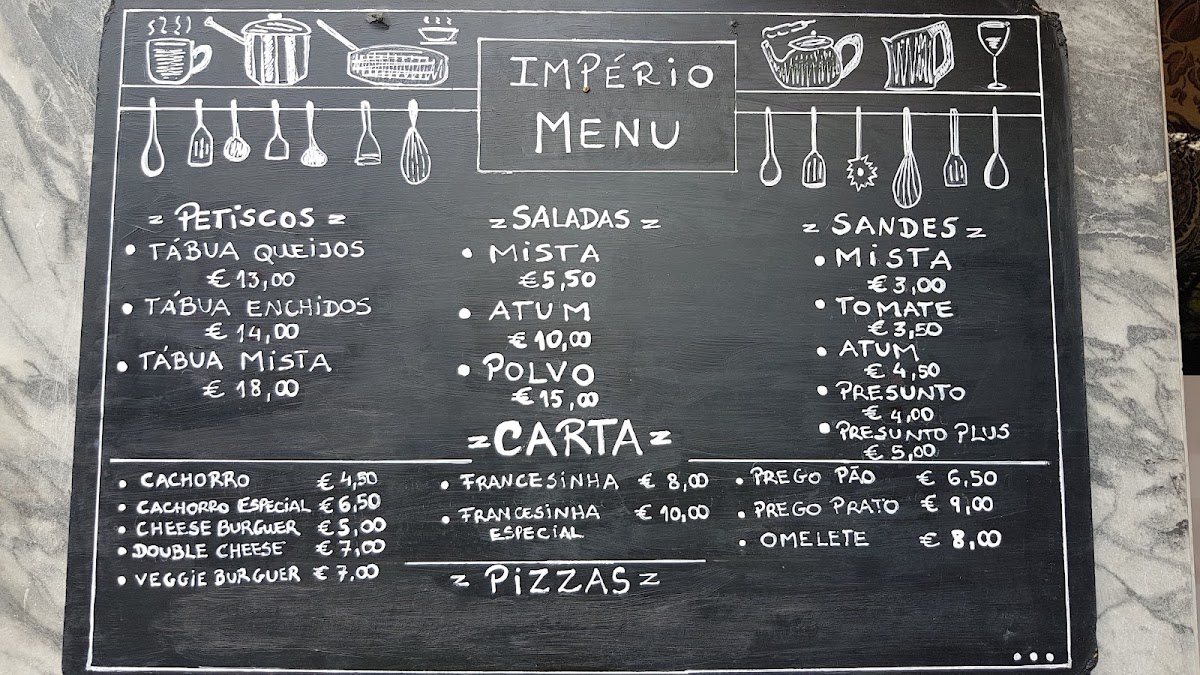 IMPÉRIO
MENU
= PETISCOS =
• TÁBUA QUEIJOS
€ 13,00
• TÁBUA ENCHIDOS
€ 14,00
• TÁBUA MISTA
€ 18,00
= SALADAS =
• MISTA
€ 5,50
• ATUM
€ 10,00
• POLVO
€ 15,00
= SANDES =
• MISTA
€ 3,00
• TOMATE
€ 3,50
• ATUM
€ 4,50
• PRESUNTO
€ 4,00
• PRESUNTO PLUS
€ 5,00
= CARTA =
• CACHORRO € 4,50
• CACHORRO ESPECIAL € 6,50
• CHEESE BURGUER € 5,00
• DOUBLE CHEESE € 7,00
• VEGGIE BURGUER € 7,00
• FRANCESINHA € 8,00
• FRANCESINHA € 10,00
ESPECIAL
• PREGO PÃO € 6,50
• PREGO PRATO € 9,00
• OMELETE € 8,00
= PIZZAS =
...